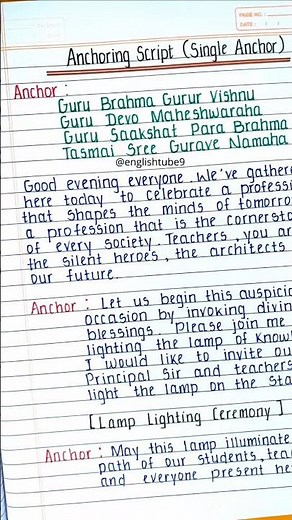 PAGE NO.:
DATE: / /
Anchoring Script (Single Anchor)
Anchor :
Guru Brahma Gurur Vishnu
Guru Devo Maheshwaraha
Guru Saakshat Para Brahma
Tasmai Sree Gurave Namaha
@englishtube9
Good evening everyone. We've gathere
here today to celebrate a professi
that shapes the minds of tomorro
a profession that is the cornersto
of every society. Teachers, you ar
the silent heroes, the architects
our future.
Anchor : Let us begin this auspicio
occasion by invoking divin
blessings. Please join me
lighting the lamp of Know
I would like to invite ou
Principal Sir and teachers
light the lamp on the sta
[Lamp Lighting Ceremony]
Anchor : May this lamp illuminate
path of our students, tea
and everyone present he